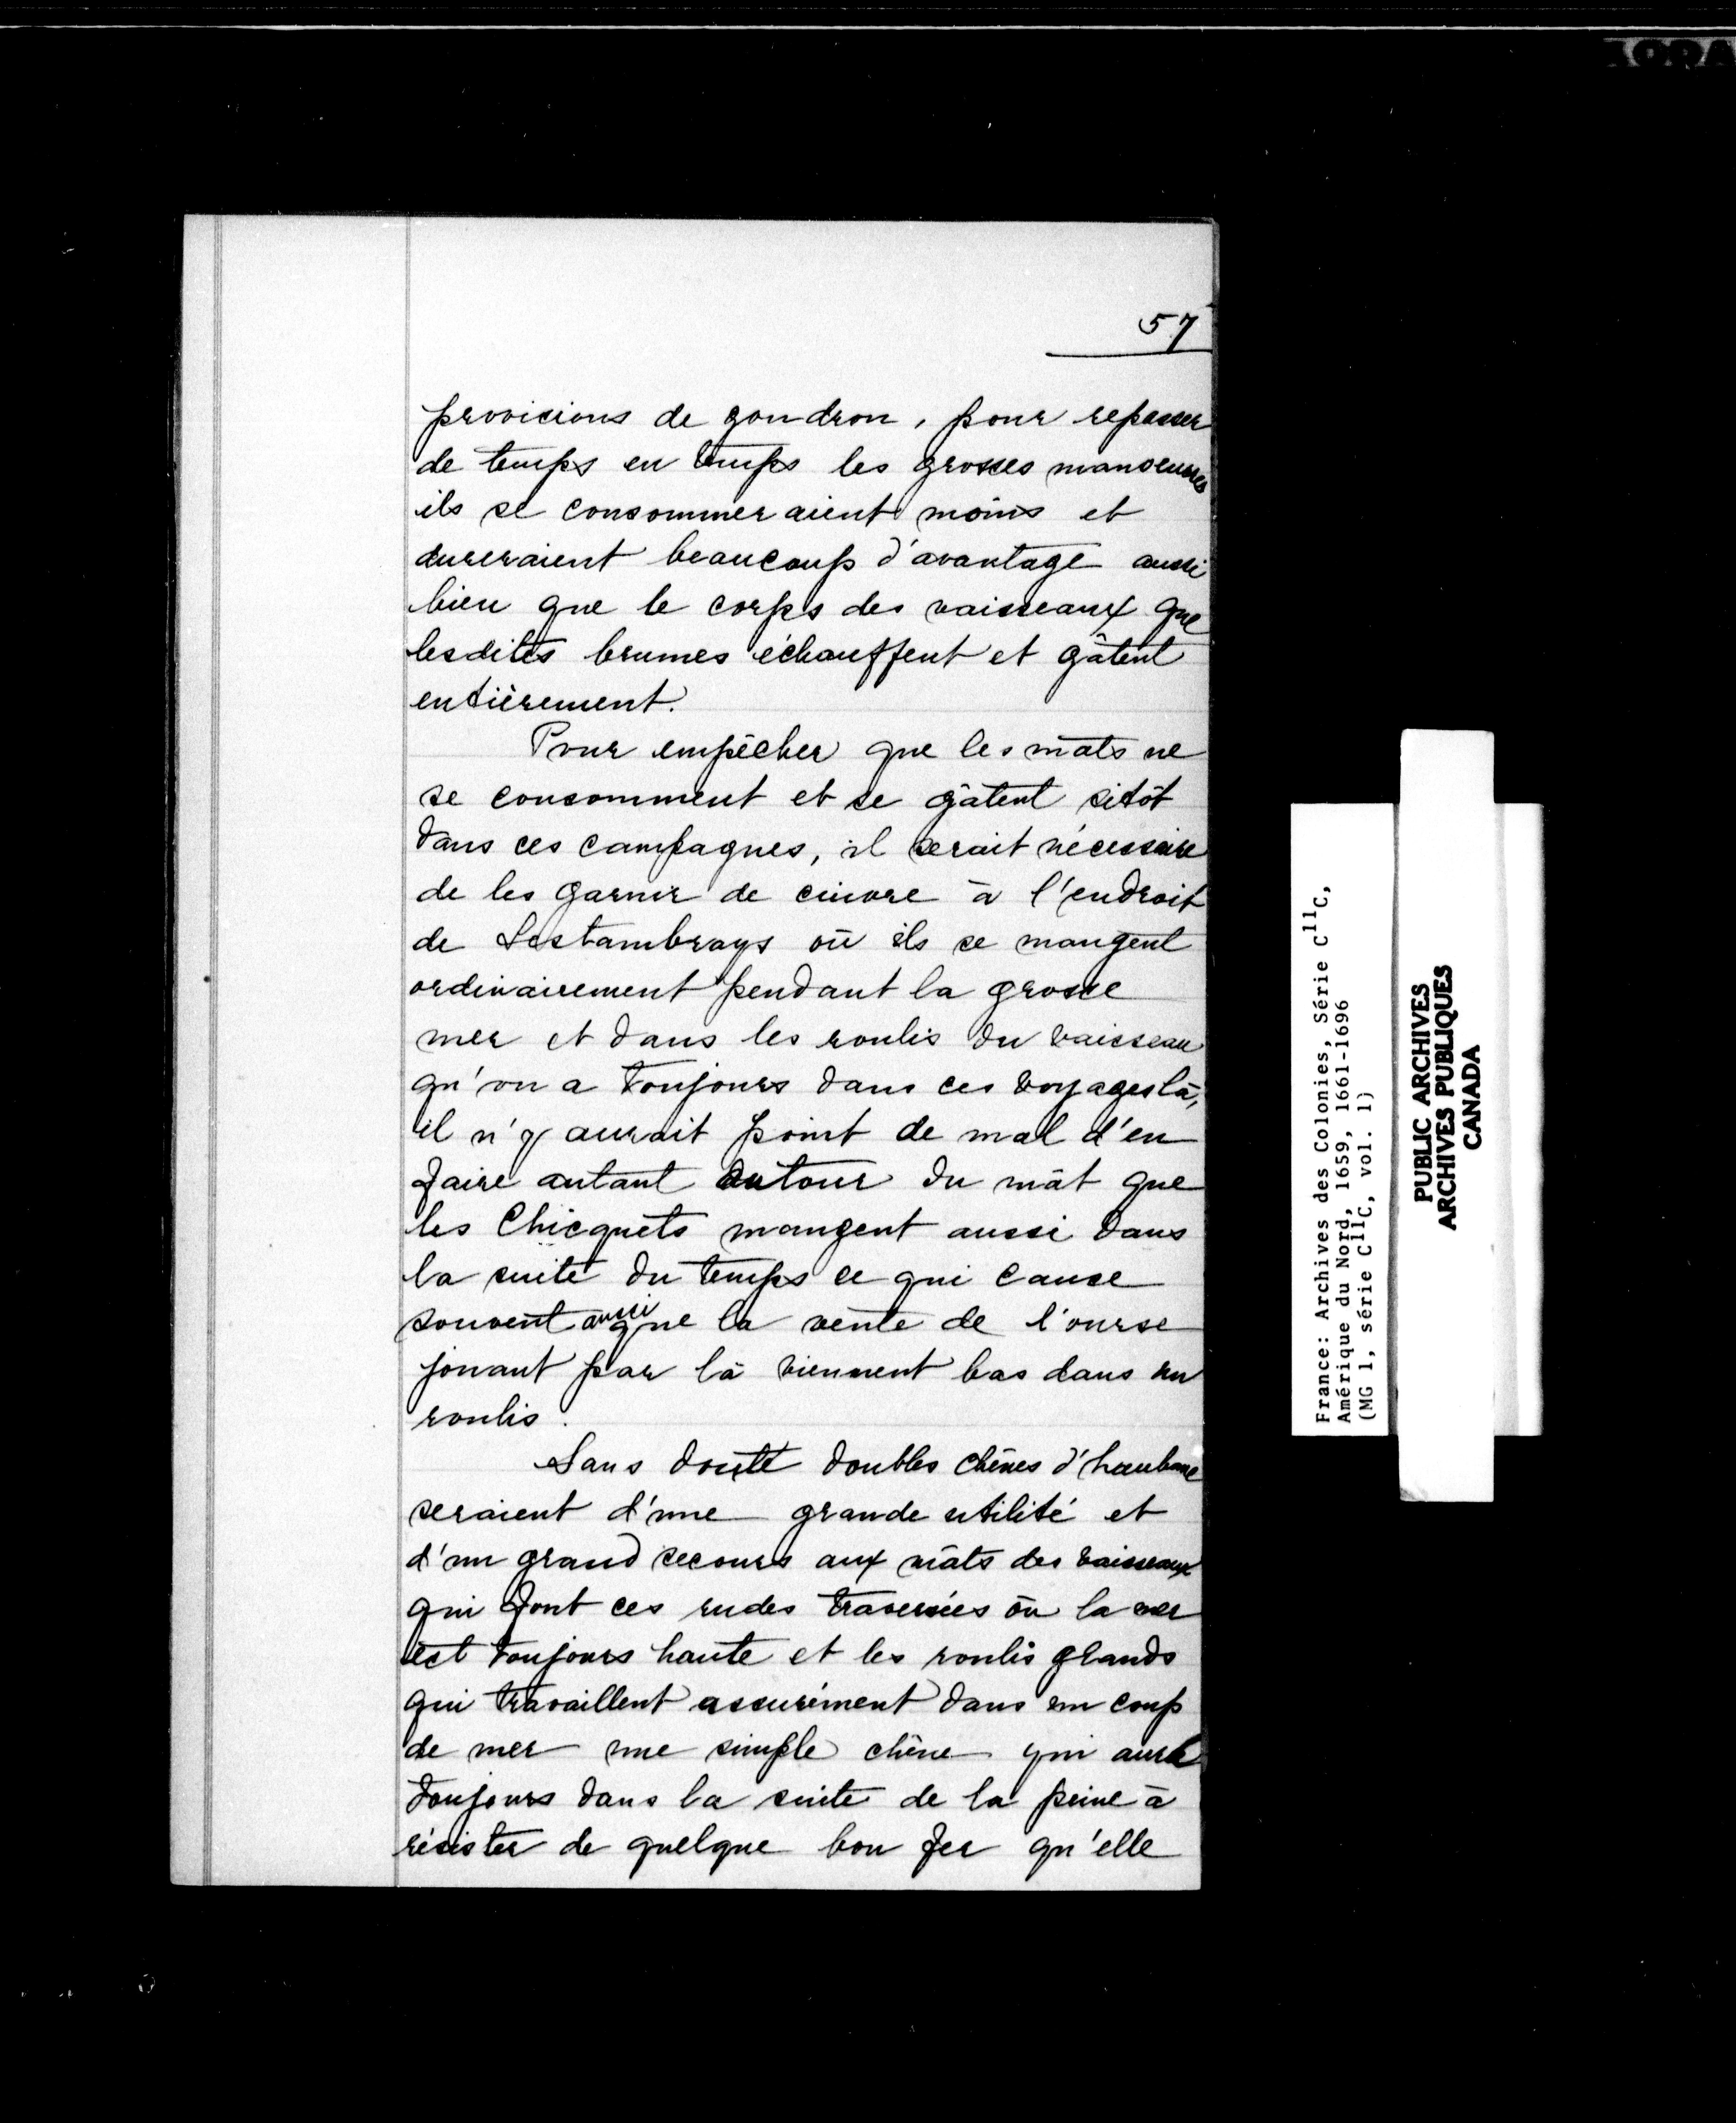 57
provisions de goudron, pour repasser
de temps en temps les grosses manoeuvres
ils se consommeraient moins et
dureraient beaucoup d'avantage aussi
bien que le corps des vaisseaux que
lesdites brumes échauffent et gâtent
entièrement.
Pour empêcher que les mâts ne
se consomment et se gâtent sitôt
dans ces campagnes, il serait nécessaire
de les garnir de cuivre à l'endroit
de Lestambrays où ils se mangent
ordinairement pendant la grosse
mer et dans les roulis du vaisseau
qu'on a toujours dans ces voyages là,
il n'y aurait point de mal d'en
faire autant autour du mât que
les Chicquets mangent aussi dans
la suite du temps ce qui cause
souvent aussi que la vente de l'ourse
jouant par là viennent bas dans un
roulis.
Sans doute doubles chênes d'haubans
seraient d'une grande utilité et
d'un grand secours aux mâts des vaisseaux
qui font ces rudes traversées où la mer
est toujours haute et les roulis grands
qui travaillent assurément dans un coup
de mer une simple chêne qui aura
toujours dans la suite de la peine à
résister de quelque bon fer qu'elle
France: Archives des Colonies, Série C11C,
Amérique du Nord, 1659, 1661-1696
(MG 1, série C11C, vol. 1)
PUBLIC ARCHIVES
ARCHIVES PUBLIQUES
CANADA